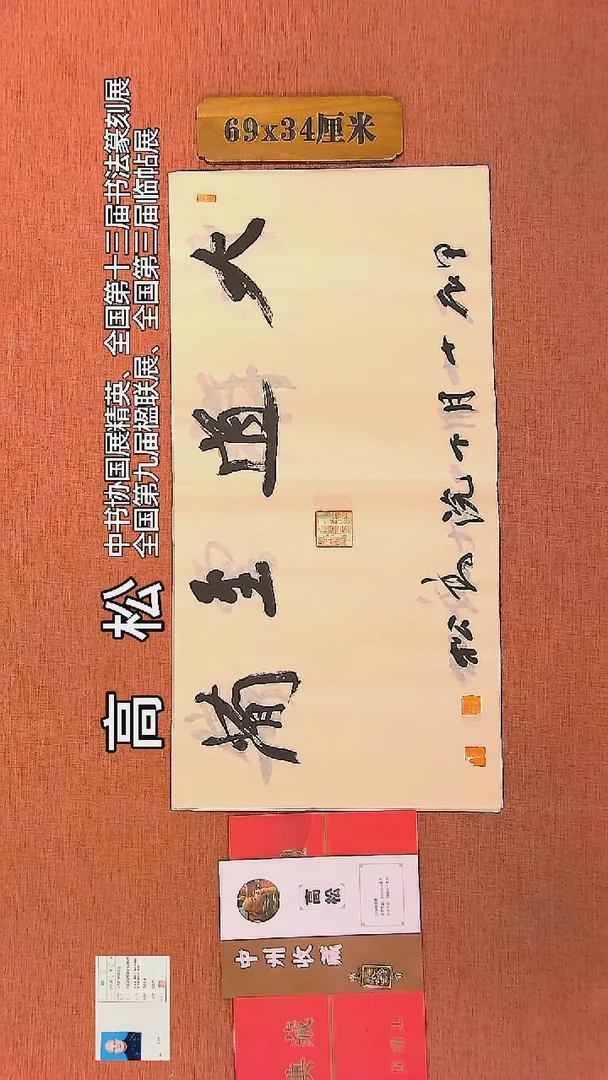 69x34厘米
高 松
中书协国展精英、全国第十三届书法篆刻展
全国第九届楹联展、全国第三届临帖展
大道至簡
甲辰十月
高松
高松
中州收藏
典藏